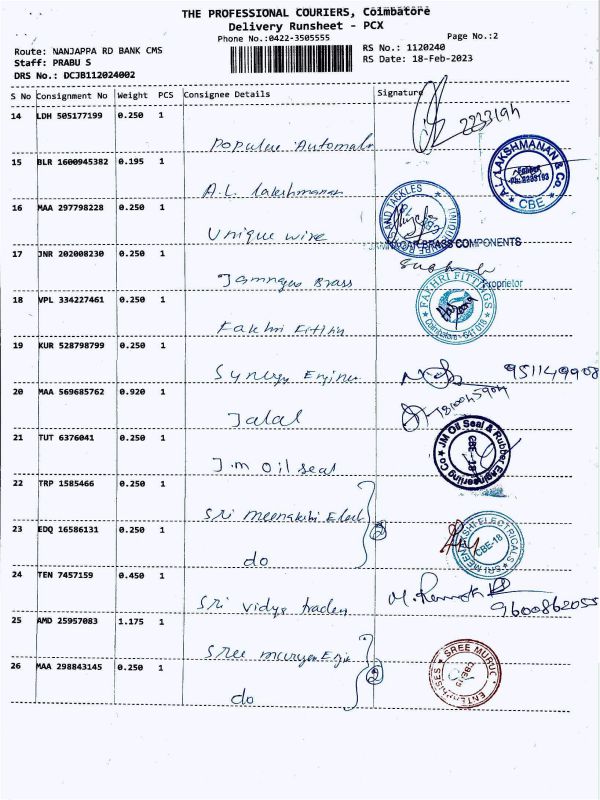 THE PROFESSIONAL COURIERS, Coimbatore
Delivery Runsheet - PCX
Phone No.:0422-3505555
Page No.:2
Route: NANJAPPA RD BANK CMS
RS No.: 1120240
Staff: PRABU S
RS Date: 18-Feb-2023
DRS No.: DCJB112024002
S No Consignment No Weight PCS Consignee Details Signature
14 LDH 505177199 0.250 1
Populur Automab
15 BLR 1600945382 0.195 1
A.L. Lakshmanan
A.L. LAKSHMANAN & Co. CBE
16 MAA 297798228 0.250 1
Unique wire
AND TACKLES
17 JNR 202008230 0.250 1
JAMNAGAR BRASS COMPONENTS
Jamnagar Brass
Proprietor
18 VPL 334227461 0.250 1
Fakhri Fitting
FAKHRI FITTINGS Coimbatore - 641 018
19 KUR 528798799 0.250 1
Synergy Engine
951149908
20 MAA 569685762 0.920 1
Jalal
21 TUT 6376041 0.250 1
J.m Oil seal
JM Oil Seal & Rubber Engineering Co CBE-18
22 TRP 1585466 0.250 1
Sri meenakshi Elect
23 EDQ 16586131 0.250 1
do
2
SRI MEENAKSHI ELECTRICALS CBE-18
24 TEN 7457159 0.450 1
Sri vidya traders
9600862055
25 AMD 25957083 1.175 1
Sree murugan Engi
26 MAA 298843145 0.250 1
do
2
SREE MURUG ENTERPRISES